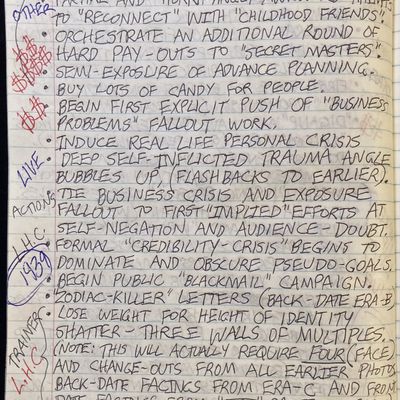 OTHER
TO "RECONNECT" WITH "CHILDHOOD FRIENDS".
• ORCHESTRATE AN ADDITIONAL ROUND OF
HARD PAY-OUTS TO "SECRET MASTERS".
• SEMI-EXPOSURE OF ADVANCE PLANNING.
• BUY LOTS OF CANDY FOR PEOPLE.
• BEGIN FIRST EXPLICIT PUSH OF "BUSINESS
PROBLEMS" FALLOUT WORK.
• INDUCE REAL LIFE PERSONAL CRISIS
LIVE • DEEP SELF-INFLICTED TRAUMA ANGLE
BUBBLES UP, (FLASHBACKS TO EARLIER).
ACTIONS • TIE BUSINESS CRISIS AND EXPOSURE
FALLOUT TO FIRST "IMPLIED" EFFORTS AT
L.H.C. SELF-NEGATION AND AUDIENCE-DOUBT.
1939 • FORMAL "CREDIBILITY-CRISIS" BEGINS TO
DOMINATE AND OBSCURE PSEUDO-GOALS.
• BEGIN PUBLIC "BLACKMAIL" CAMPAIGN.
• "ZODIAC-KILLER" LETTERS (BACK-DATE ERA-B)
TRAINER • LOSE WEIGHT FOR HEIGHT OF IDENTITY
SHATTER - THREE WALLS OF MULTIPLES.
(NOTE: THIS WILL ACTUALLY REQUIRE FOUR (FACE)
L.H.C AND CHANGE-OUTS FROM ALL EARLIER PHOTOS
BACK-DATE FACINGS FROM ERA-C AND FROM